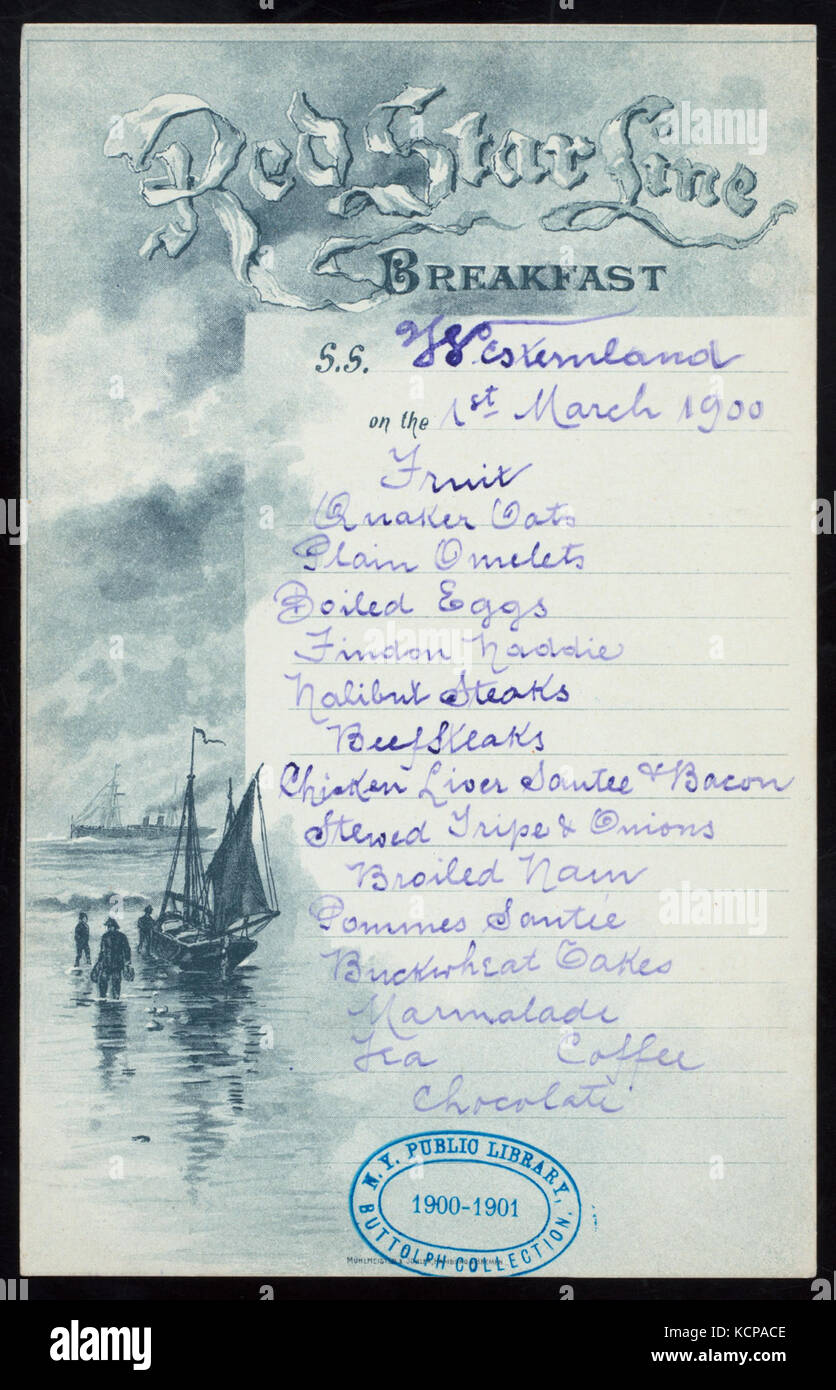 Red Star Line
BREAKFAST
S.S. Westernland
on the 1st March 1900
Fruit
Quaker Oats
Plain Omelets
Boiled Eggs
Findon Haddie
Halibut Steaks
Beefsteaks
Chicken Liver Santee & Bacon
Stewed Tripe & Onions
Broiled Ham
Pommes Santée
Buckwheat Cakes
Marmalade
Tea Coffee
Chocolate
N. Y. PUBLIC LIBRARY,
1900-1901
BUTTOLPH COLLECTION.
alamy stock photo
Image ID: KCPACE
www.alamy.com